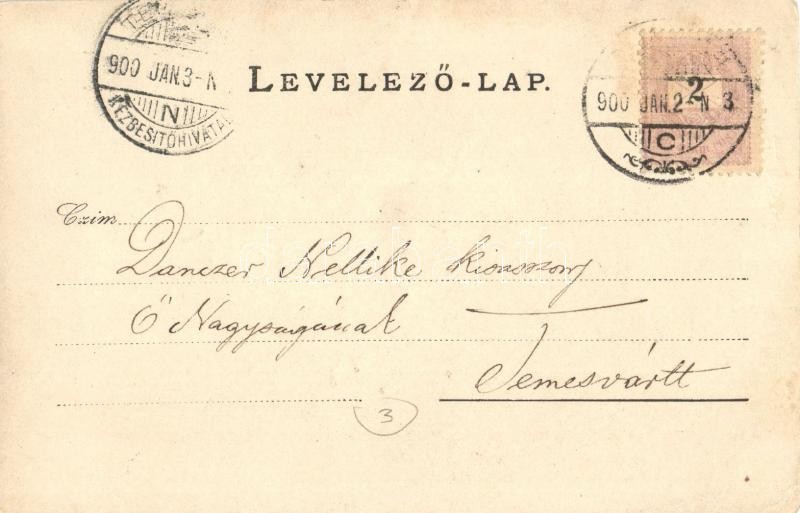 900 JAN. 3 - N
N
KÉZBESITŐHIVATAL
LEVELEZŐ-LAP.
2
900 JAN. 2 - N 3
C
Czim
Danczer Nellike kisasszony
Ő Nagyságának
Temesvártt
3